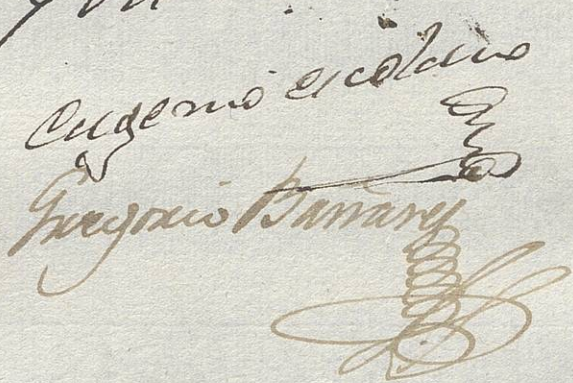 Eugenio escolano
Gregorio Bañares